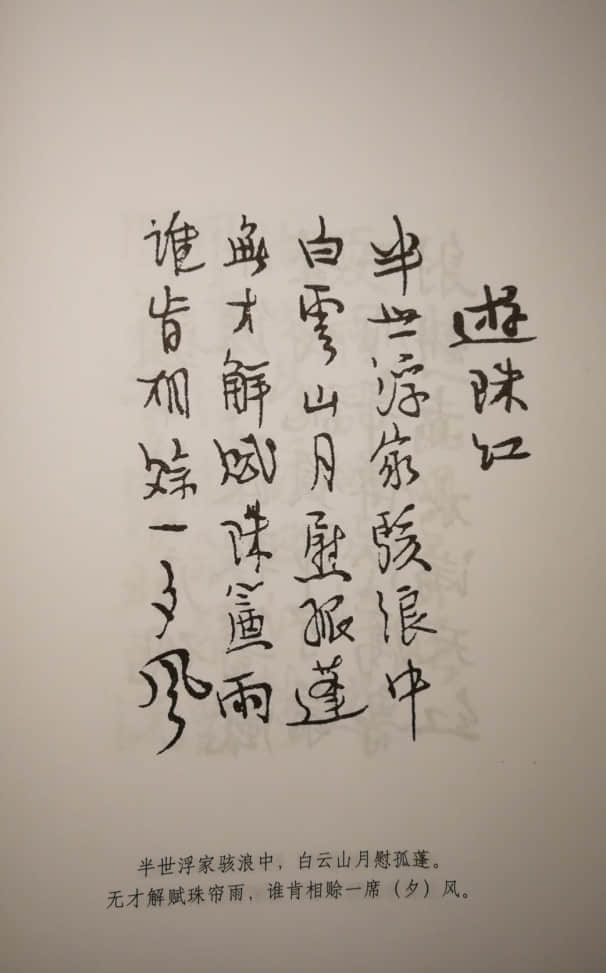 遊珠江
半世浮家駭浪中
白雲山月慰孤蓬
無才解賦珠簾雨
誰肯相赊一夕風
半世浮家骇浪中，白云山月慰孤蓬。
无才解赋珠帘雨，谁肯相赊一席（夕）风。